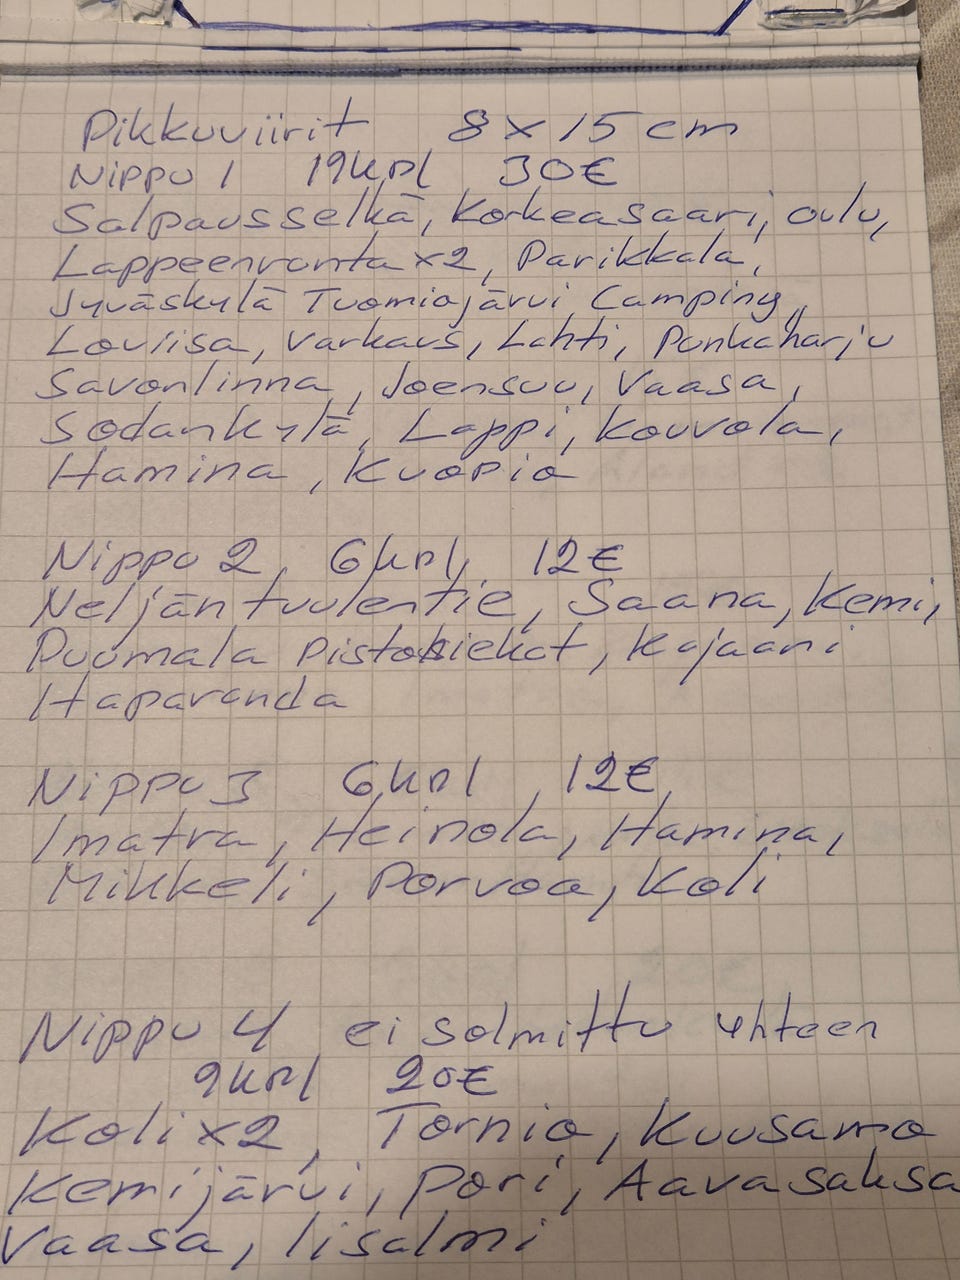 Pikkuviirit 8 x 15 cm
Nippu 1 19kpl 30€
Salpausselkä, Korkeasaari, Oulu,
Lappeenranta x2, Parikkala,
Jyväskylä Tuomiojärvi Camping,
Loviisa, Varkaus, Lahti, Punkaharju
Savonlinna, Joensuu, Vaasa,
Sodankylä, Lappi, Kouvola,
Hamina, Kuopio
Nippu 2 6kpl 12€
Neljäntuulentie, Saana, Kemi,
Puumala Pistohiekat, Kajaani
Haparanda
Nippu 3 6kpl 12€
Imatra, Heinola, Hamina,
Mikkeli, Porvoo, Koli
Nippu 4 ei solmittu yhteen
9kpl 20€
Koli x2, Tornio, Kuusamo
Kemijärvi, Pori, Aavasaksa
Vaasa, Iisalmi